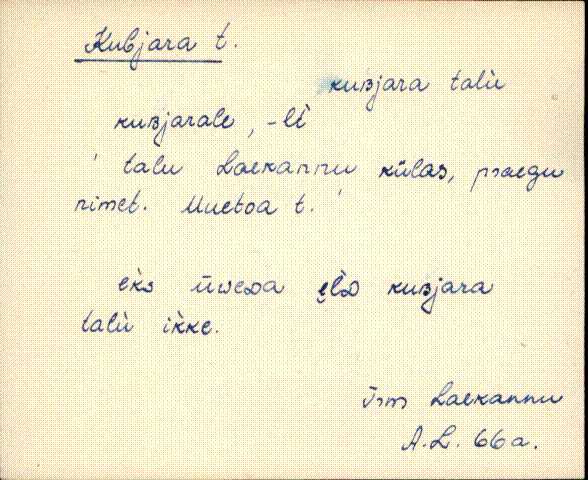 Kubjara t.
kuʙjara talù
kuʙjarale, -lè
' talu Laekannu külas, praegu
nimet. Muetoa t. '
eks ūweᴅa ęlᴅ kuʙjara
talù ikke.
Trm Laekannu
A.L. 66a.